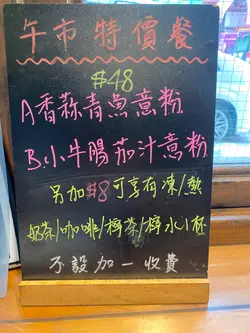 午市特價餐
$48
A香蒜青魚意粉
B.小牛腸茄汁意粉
另加$8可享有凍/熱
奶茶/咖啡/檸茶/檸水1杯
不設加一收費